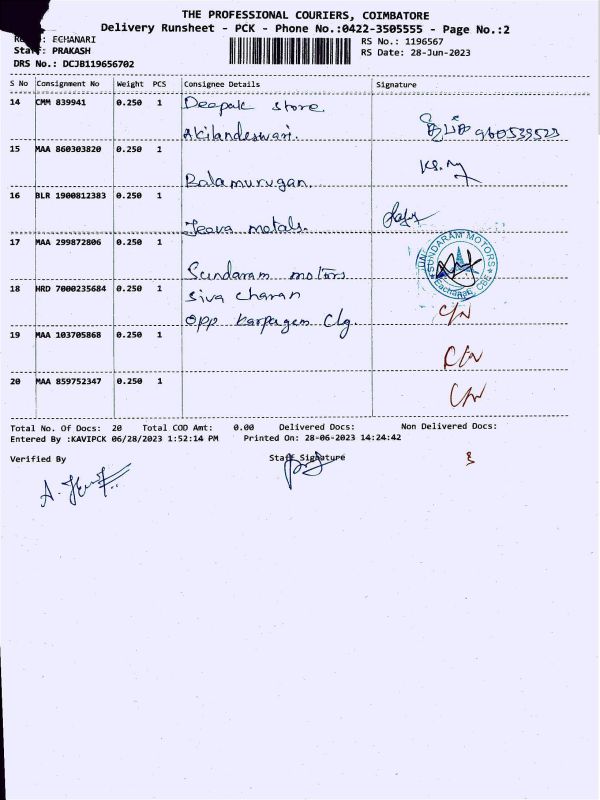 THE PROFESSIONAL COURIERS, COIMBATORE
Delivery Runsheet - PCK - Phone No.:0422-3505555 - Page No.:2
: ECHANARI
RS No.: 1196567
Staff: PRAKASH
RS Date: 28-Jun-2023
DRS No.: DCJB119656702
S No Consignment No Weight PCS Consignee Details Signature
14 CMM 839941 0.250 1 Deepak store
Akilandeswari.
15 MAA 860303820 0.250 1
Balamurugan.
16 BLR 1900812383 0.250 1
Jeava motals.
17 MAA 299872806 0.250 1 SUNDARAM MOTORS
Sundaram motors
Eachanari, CBE
18 HRD 7000235684 0.250 1 Siva charan
Opp Karpagem Clg. C/N
19 MAA 103705868 0.250 1
C/N
20 MAA 859752347 0.250 1
C/N
Total No. Of Docs: 20 Total COD Amt: 0.00 Delivered Docs: Non Delivered Docs:
Entered By :KAVIPCK 06/28/2023 1:52:14 PM Printed On: 28-06-2023 14:24:42
Verified By Staff Signature
3